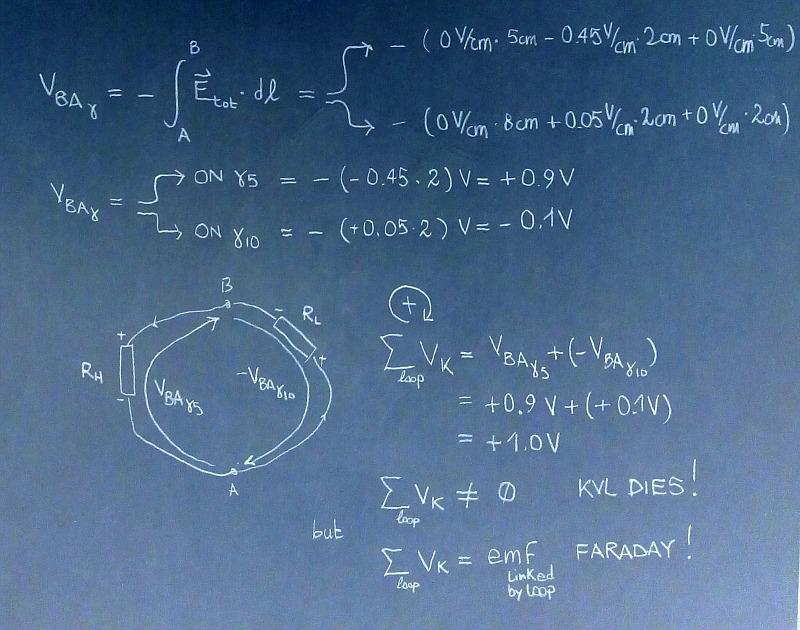 V_BAγ = − ∫_A^B E⃗_tot · dl = → − (0 V/cm · 5cm − 0.45 V/cm · 2cm + 0 V/cm 5cm)
→ − (0 V/cm · 8cm + 0.05 V/cm · 2cm + 0 V/cm · 2cm)
V_BAγ = → ON γ5 = − (−0.45 · 2) V = +0.9V
→ ON γ10 = − (+0.05·2) V = − 0.1V
B
− R_L
+
+
R_H
−
V_BAγ5
−V_BAγ10
A
+
∑_loop V_K = V_BAγ5 + (−V_BAγ10)
= +0.9 V + (+0.1V)
= +1.0V
∑_loop V_K ≠ ∅ KVL DIES!
but
∑_loop V_K = emf Linked by Loop FARADAY!